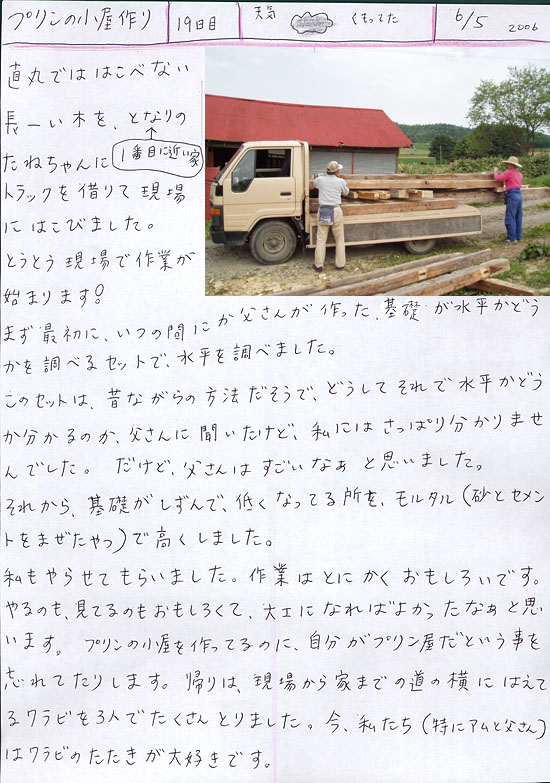 プリンの小屋作り 19日目 天気 くもってた 6/5 2006
直丸でははこべない
長ーい木を、となりの
1番目に近い家
たねちゃんに
トラックを借りて現場
にはこびました。
とうとう現場で作業が
始まります!
まず最初に、いつの間にか父さんが作った、基礎が水平かどう
かを調べるセットで、水平を調べました。
このセットは、昔ながらの方法だそうで、どうしてそれで水平かどう
か分かるのか、父さんに聞いたけど、私にはさっぱり分かりませ
んでした。 だけど、父さんはすごいなぁと思いました。
それから、基礎がしずんで、低くなってる所を、モルタル(砂とセメン
トをまぜたやつ)で高くしました。
私もやらせてもらいました。作業はとにかくおもしろいです。
やるのも、見てるのもおもしろくて、大工になればよかったなぁと思
います。 プリンの小屋を作ってるのに、自分がプリン屋だという事を
忘れてたりします。帰りは、現場から家までの道の横にはえて
るワラビを3人でたくさんとりました。今、私たち(特にアムと父さん)
はワラビのたたきが大好きです。